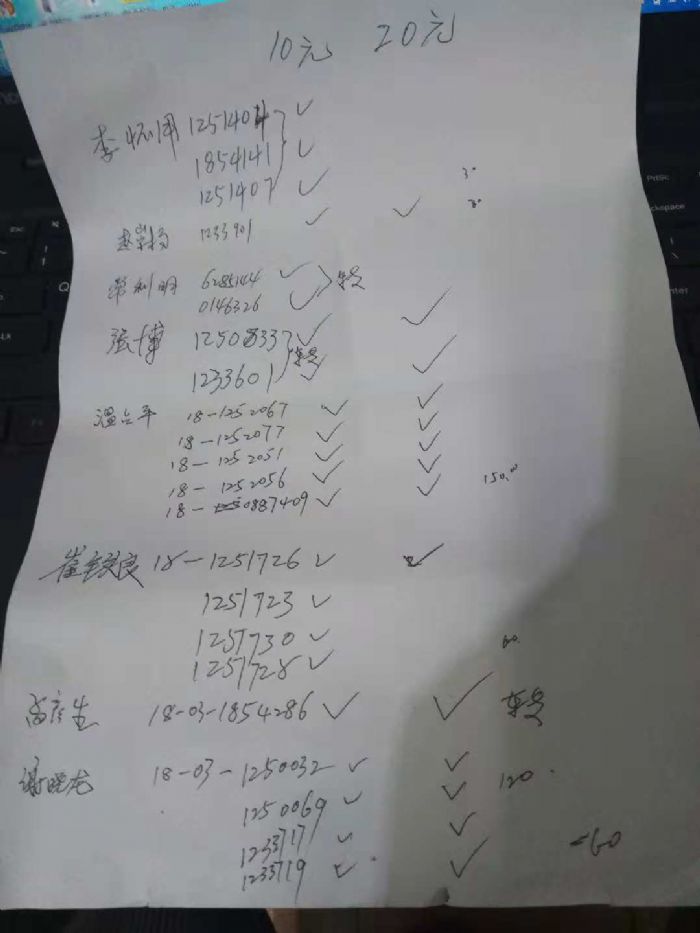 10元 20元
李 1251404 ✓
1854141 ✓
1251407 ✓ 30
1233901 ✓ ✓ 30
常利明 6285144 ✓
0146326 ✓ ✓
强博 12508337 ✓
1233601 ✓ ✓
温 18-1252067 ✓ ✓
18-1252077 ✓ ✓
18-1252051 ✓ ✓
18-1252056 ✓ ✓ 150.00
18-0887409 ✓
崔良 18-1251726 ✓ ✓
1251723 ✓
1251730 ✓ 60
1251728 ✓
生 18-03-1854286 ✓ ✓
谢晓龙 18-03-1250032 ✓ ✓ 120.
1250069 ✓ ✓
1233717 ✓ ✓ -60
1233719 ✓ ✓
PrtSc